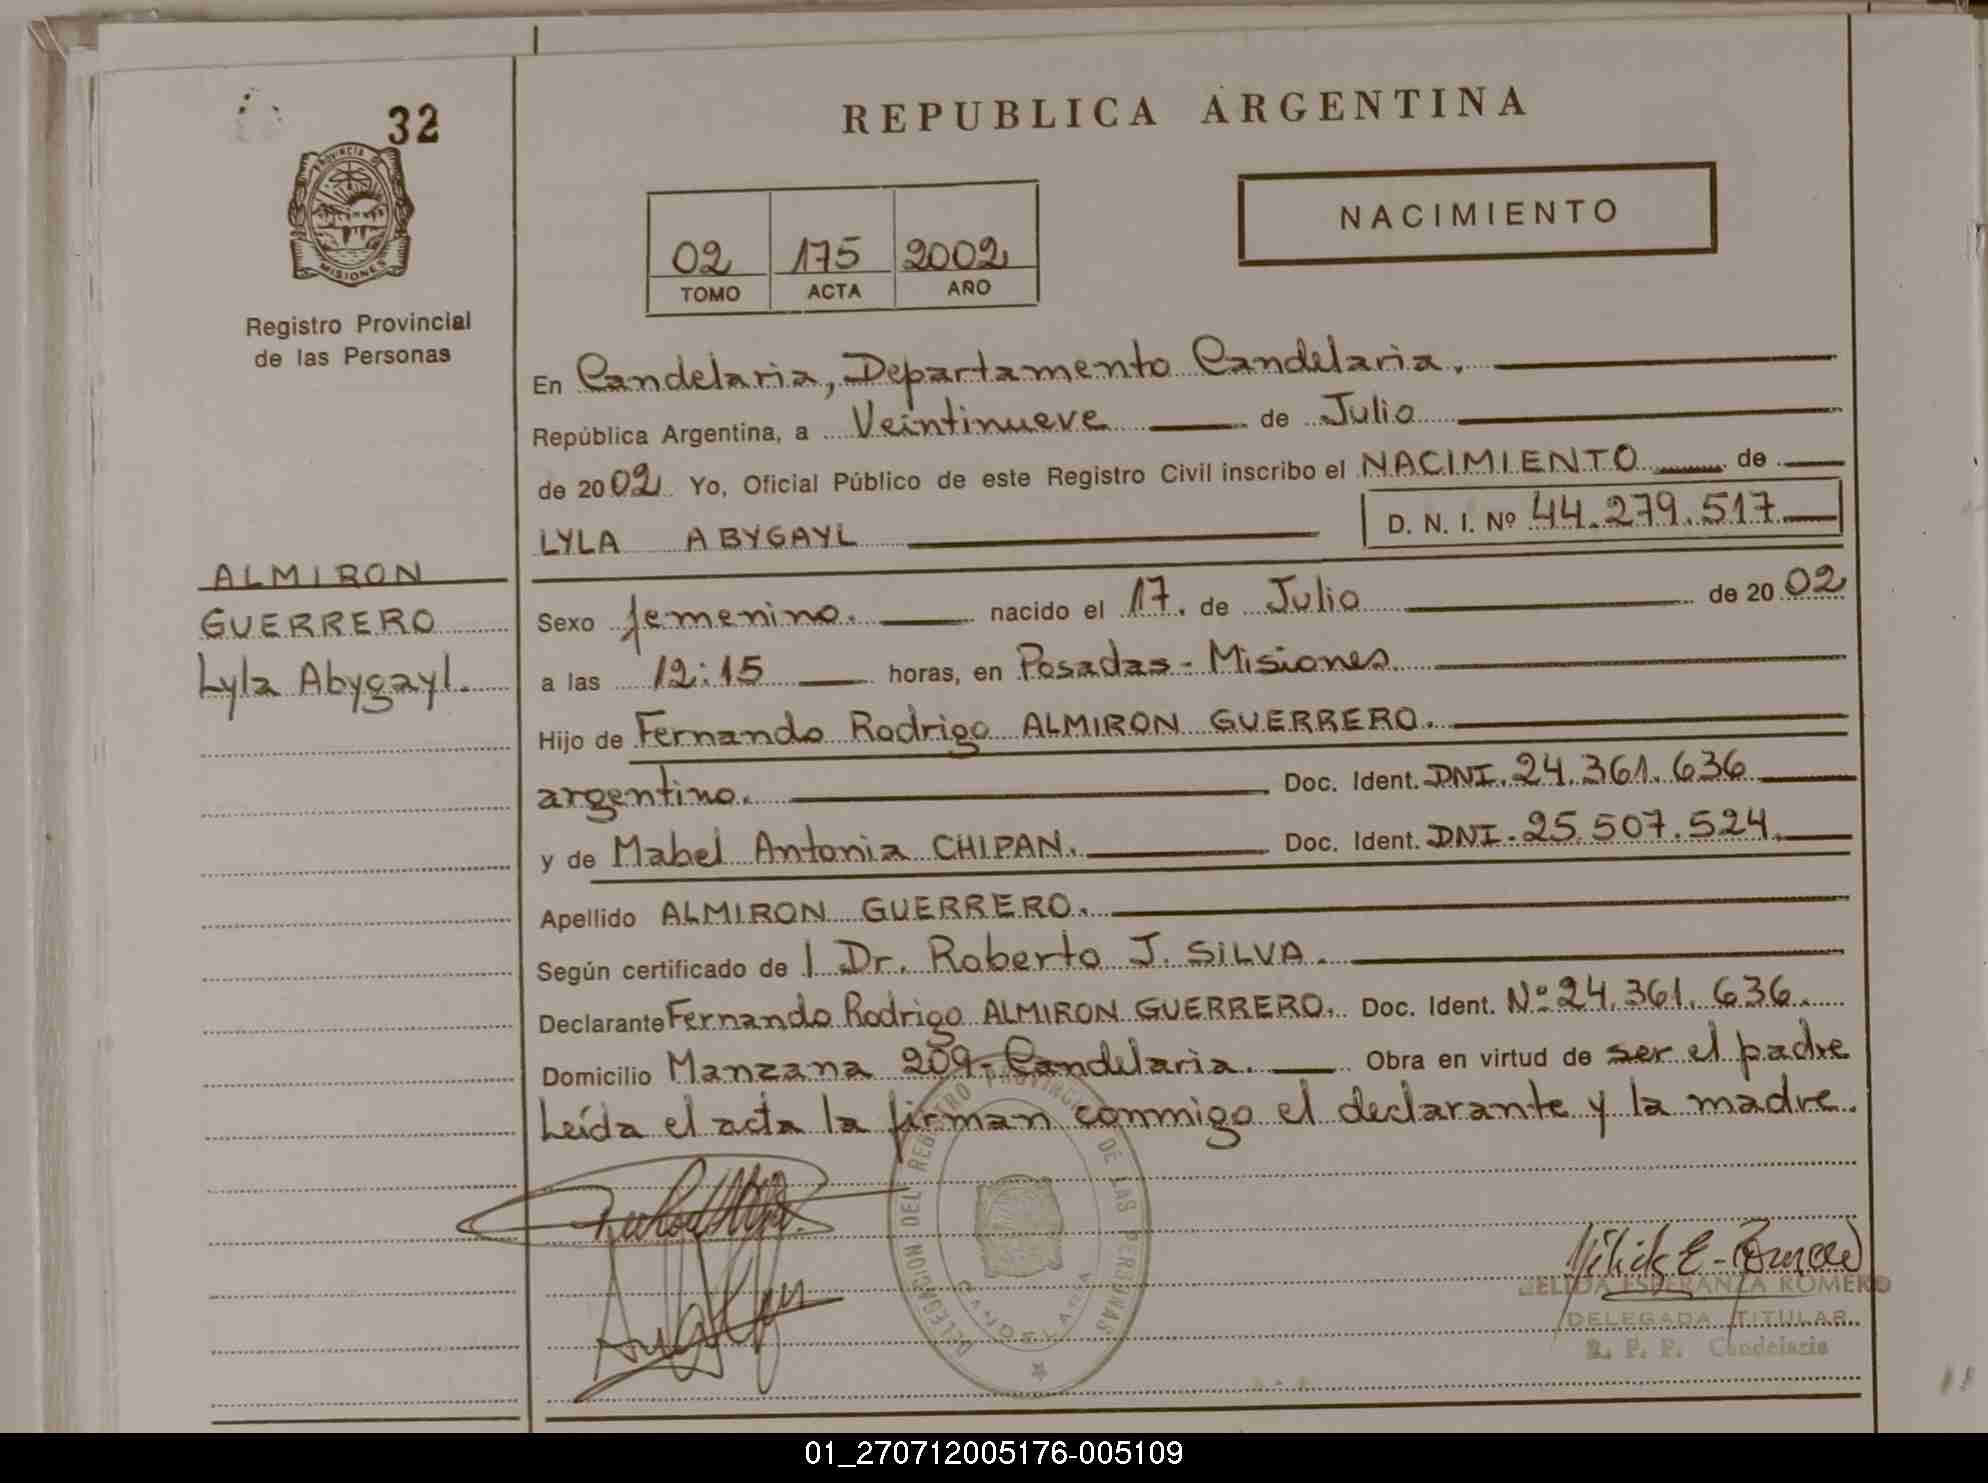 32
PROVINCIA DE
MISIONES
Registro Provincial
de las Personas
REPUBLICA ARGENTINA
02 175 2002
TOMO ACTA AÑO
NACIMIENTO
En Candelaria, Departamento Candelaria.
República Argentina, a Veintinueve de Julio
de 2002 Yo, Oficial Público de este Registro Civil inscribo el NACIMIENTO de
LYLA ABYGAYL D. N. I. Nº 44.279.517
ALMIRON
GUERRERO
Lyla Abygayl.
Sexo femenino. nacido el 17. de Julio de 2002
a las 12:15 horas, en Posadas - Misiones
Hijo de Fernando Rodrigo ALMIRON GUERRERO.
argentino. Doc. Ident. DNI. 24.361.636
y de Mabel Antonia CHIPAN. Doc. Ident. DNI. 25.507.524.
Apellido ALMIRON GUERRERO.
Según certificado de l Dr. Roberto J. SILVA.
Declarante Fernando Rodrigo ALMIRON GUERRERO. Doc. Ident. Nº 24.361.636.
Domicilio Manzana 209- Candelaria. Obra en virtud de ser el padre
Leída el acta la firman conmigo el declarante y la madre.
DELEGACION DEL REGISTRO PROVINCIAL DE LAS PERSONAS
CANDELARIA
ELIDA ESPERANZA ROMERO
DELEGADA TITULAR
R. P. P. Candelaria
01_270712005176-005109